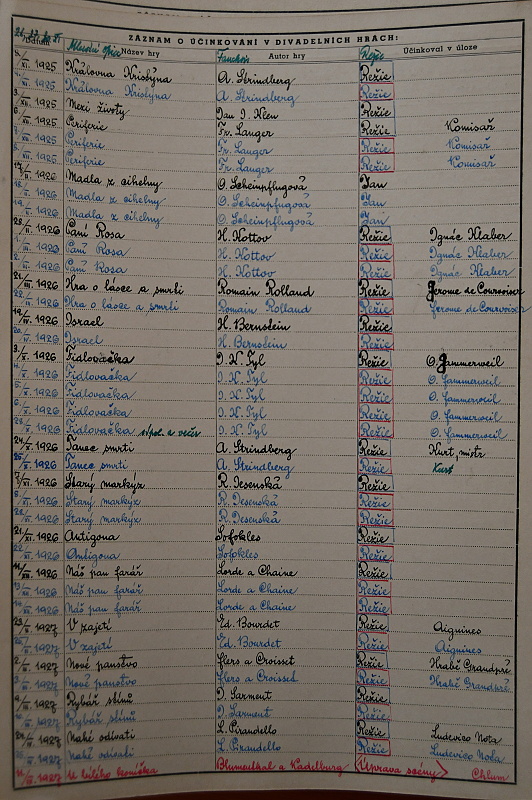 ZÁZNAM O ÚČINKOVÁNÍ V DIVADELNÍCH HRÁCH:
Datum Název hry Autor hry Účinkoval v úloze
Mlsná Režie
XI. 1925 Královna Kristýna A. Strindberg Režie
1925 Královna Kristýna A. Strindberg
XII. 1925 Mezi životy Jan Režie
XII. 1925 Periferie Fr. Langer Režie Komisař
1925 Periferie Fr. Langer Režie Komisař
1925 Periferie Fr. Langer Režie Komisař
1926 Madla z cihelny O. Scheinpflugová Jan
1926 Madla z cihelny O. Scheinpflugová Jan
1926 Madla z cihelny O. Scheinpflugová Jan
1926 Paní Rosa H. Kottov Režie Ignác Klaber
1926 Paní Rosa H. Kottov Režie Ignác Klaber
1926 Paní Rosa H. Kottov Režie Ignác Klaber
1926 Hra o lásce a smrti Romain Rolland Režie Jerome de Courvoisier
1926 Hra o lásce a smrti Romain Rolland Režie Jerome de Courvoisier
1926 Israel H. Bernstein Režie
1926 Israel H. Bernstein Režie
1926 Fidlovačka J. K. Tyl Režie O. Jammerweil
1926 Fidlovačka J. K. Tyl Režie O. Jammerweil
1926 Fidlovačka J. K. Tyl Režie O. Jammerweil
1926 Fidlovačka J. K. Tyl Režie O. Jammerweil
1926 Fidlovačka odpol. a večer J. K. Tyl Režie O. Jammerweil
1926 Tanec smrti A. Strindberg Režie Kurt, mistr
1926 Tanec smrti A. Strindberg Režie Kurt
1926 Starý markýz R. Jesenská Režie
1926 Starý markýz R. Jesenská Režie
1926 Starý markýz R. Jesenská Režie
1926 Antigona Sofokles Režie
1926 Antigona Sofokles Režie
1926 Náš pan farář Lorde a Chaine Režie
1926 Náš pan farář Lorde a Chaine Režie
1926 Náš pan farář Lorde a Chaine Režie
1927 V zajetí Ed. Bourdet Režie Aiguines
1927 V zajetí Ed. Bourdet Režie Aiguines
1927 Nové panstvo Flers a Croisset Režie Hrabě Grandpré
1927 Nové panstvo Flers a Croisset Režie Hrabě Grandpré
1927 Rybář stínů J. Sarment Režie
1927 Rybář stínů J. Sarment Režie
1927 Nahé odívati L. Pirandello Režie Ludevico Nota
1927 Nahé odívati L. Pirandello Režie Ludevico Nota
1927 U bílého koníčka Blumenthal a Kadelburg Úprava scény Chlum